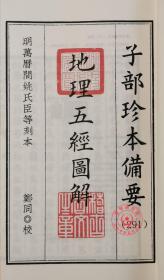 子部珍本備要
(291)
地理五經圖解
明萬曆間姚氏臣等刻本
鄭同◎校